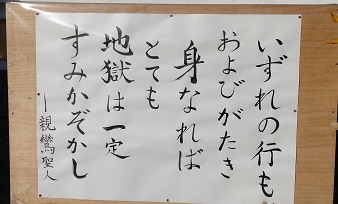 いずれの行も
およびがたき
身なれば
とても
地獄は一定
すみかぞかし
ー親鸞聖人